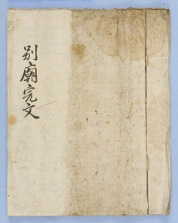 別廟完文